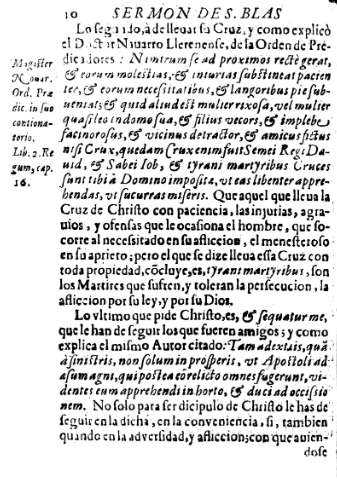 10 SERMON DE S. BLAS
Lo segundo, à de lleuar su Cruz, y como explicò
el Doctor Nauarro Llerenense, de la Orden de Pré-
dicadores: Nimirum se ad proximos rectè gerat,
& eorum molestias, & iniurias substineat pacien
ter, & eorum necessitatibus, & langoribus pie sub-
ueniat; & quid aliud est mulier rixosa, vel mulier
quasi leo in domo sua, & filius vecors, & implebe
facinorosus, & vicinus detractor, & amicus fictus
nisi Crux, quedam Crux enim fuit Semei Regi Da-
uid, & Sabei Iob, & tyrani martyribus Cruces
sunt tibi à Domino imposita, vt eas libenter appre-
hendas, vt sucurras miseris. Que aquel que lleua la
Cruz de Christo con paciencia, las injurias, agra-
uios, y ofensas que le ocasiona el hombre, que so-
corre al necessitado en su afliccion, el menesteroso
en su aprieto; pero el que se dize lleua essa Cruz con
toda propiedad, cõcluye, es, tyrani martyribus, son
los Martires que sufren, y toleran la persecucion, la
afliccion por su ley, y por su Dios.
Lo vltimo que pide Christo, es, & sequatur me,
que le han de seguir los que fueren amigos; y como
explica el mismo Autor citado: Tam à dextais, quã
à sinistris, non solum in prosperis, vt Apostoli ad
asumagni, qui postea corelicto omnes fugerunt, vi-
dentes eum apprehendi in horto, & duci ad occissio
nem. No solo para ser dicipulo de Christo le has de
seguir en la dicha, en la conveniencia, si, tambien
quando en la adversidad, y afliccion; con que auien-
dose
Magister
Nouar.
Ord. Præ
dic. in suo
contiona-
torio.
Lib. 2. Re
gum, cap.
16.